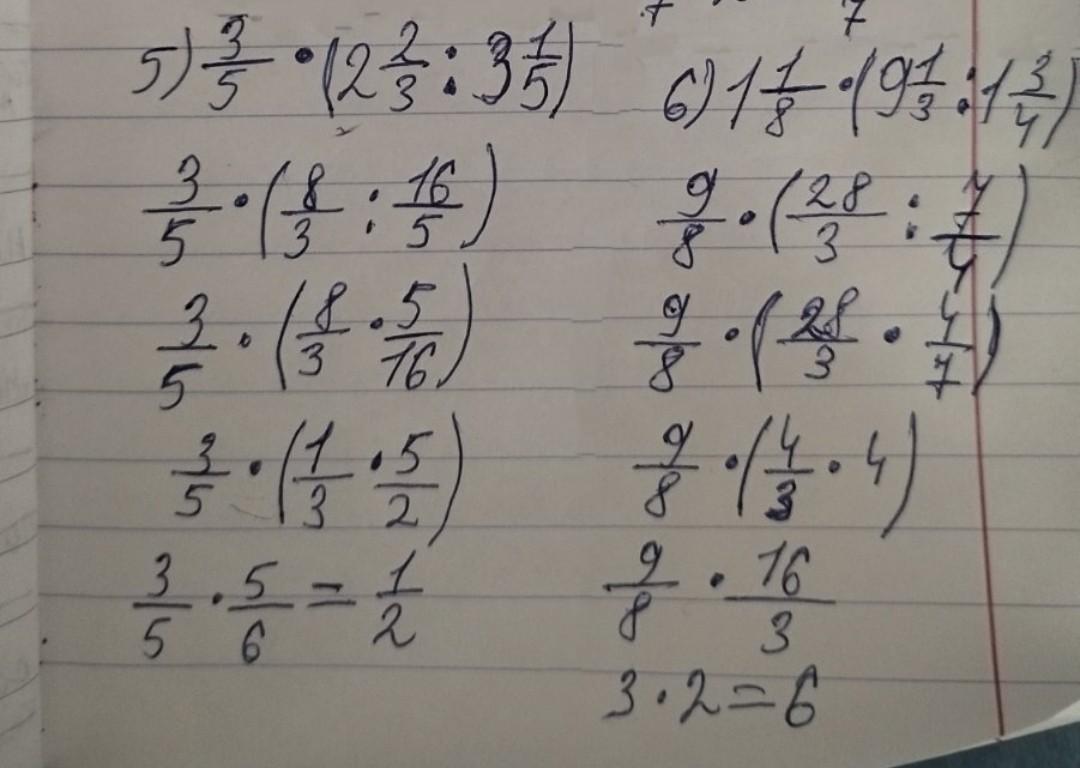 7 7
5) 3/5 · (2 2/3 : 3 1/5)
3/5 · (8/3 : 16/5)
3/5 · (8/3 · 5/16)
3/5 · (1/3 · 5/2)
3/5 · 5/6 = 1/2
6) 1 1/8 · (9 1/3 : 1 3/4)
9/8 · (28/3 : 7/4)
9/8 · (28/3 · 4/7)
9/8 · (4/3 · 4)
9/8 · 16/3
3 · 2 = 6